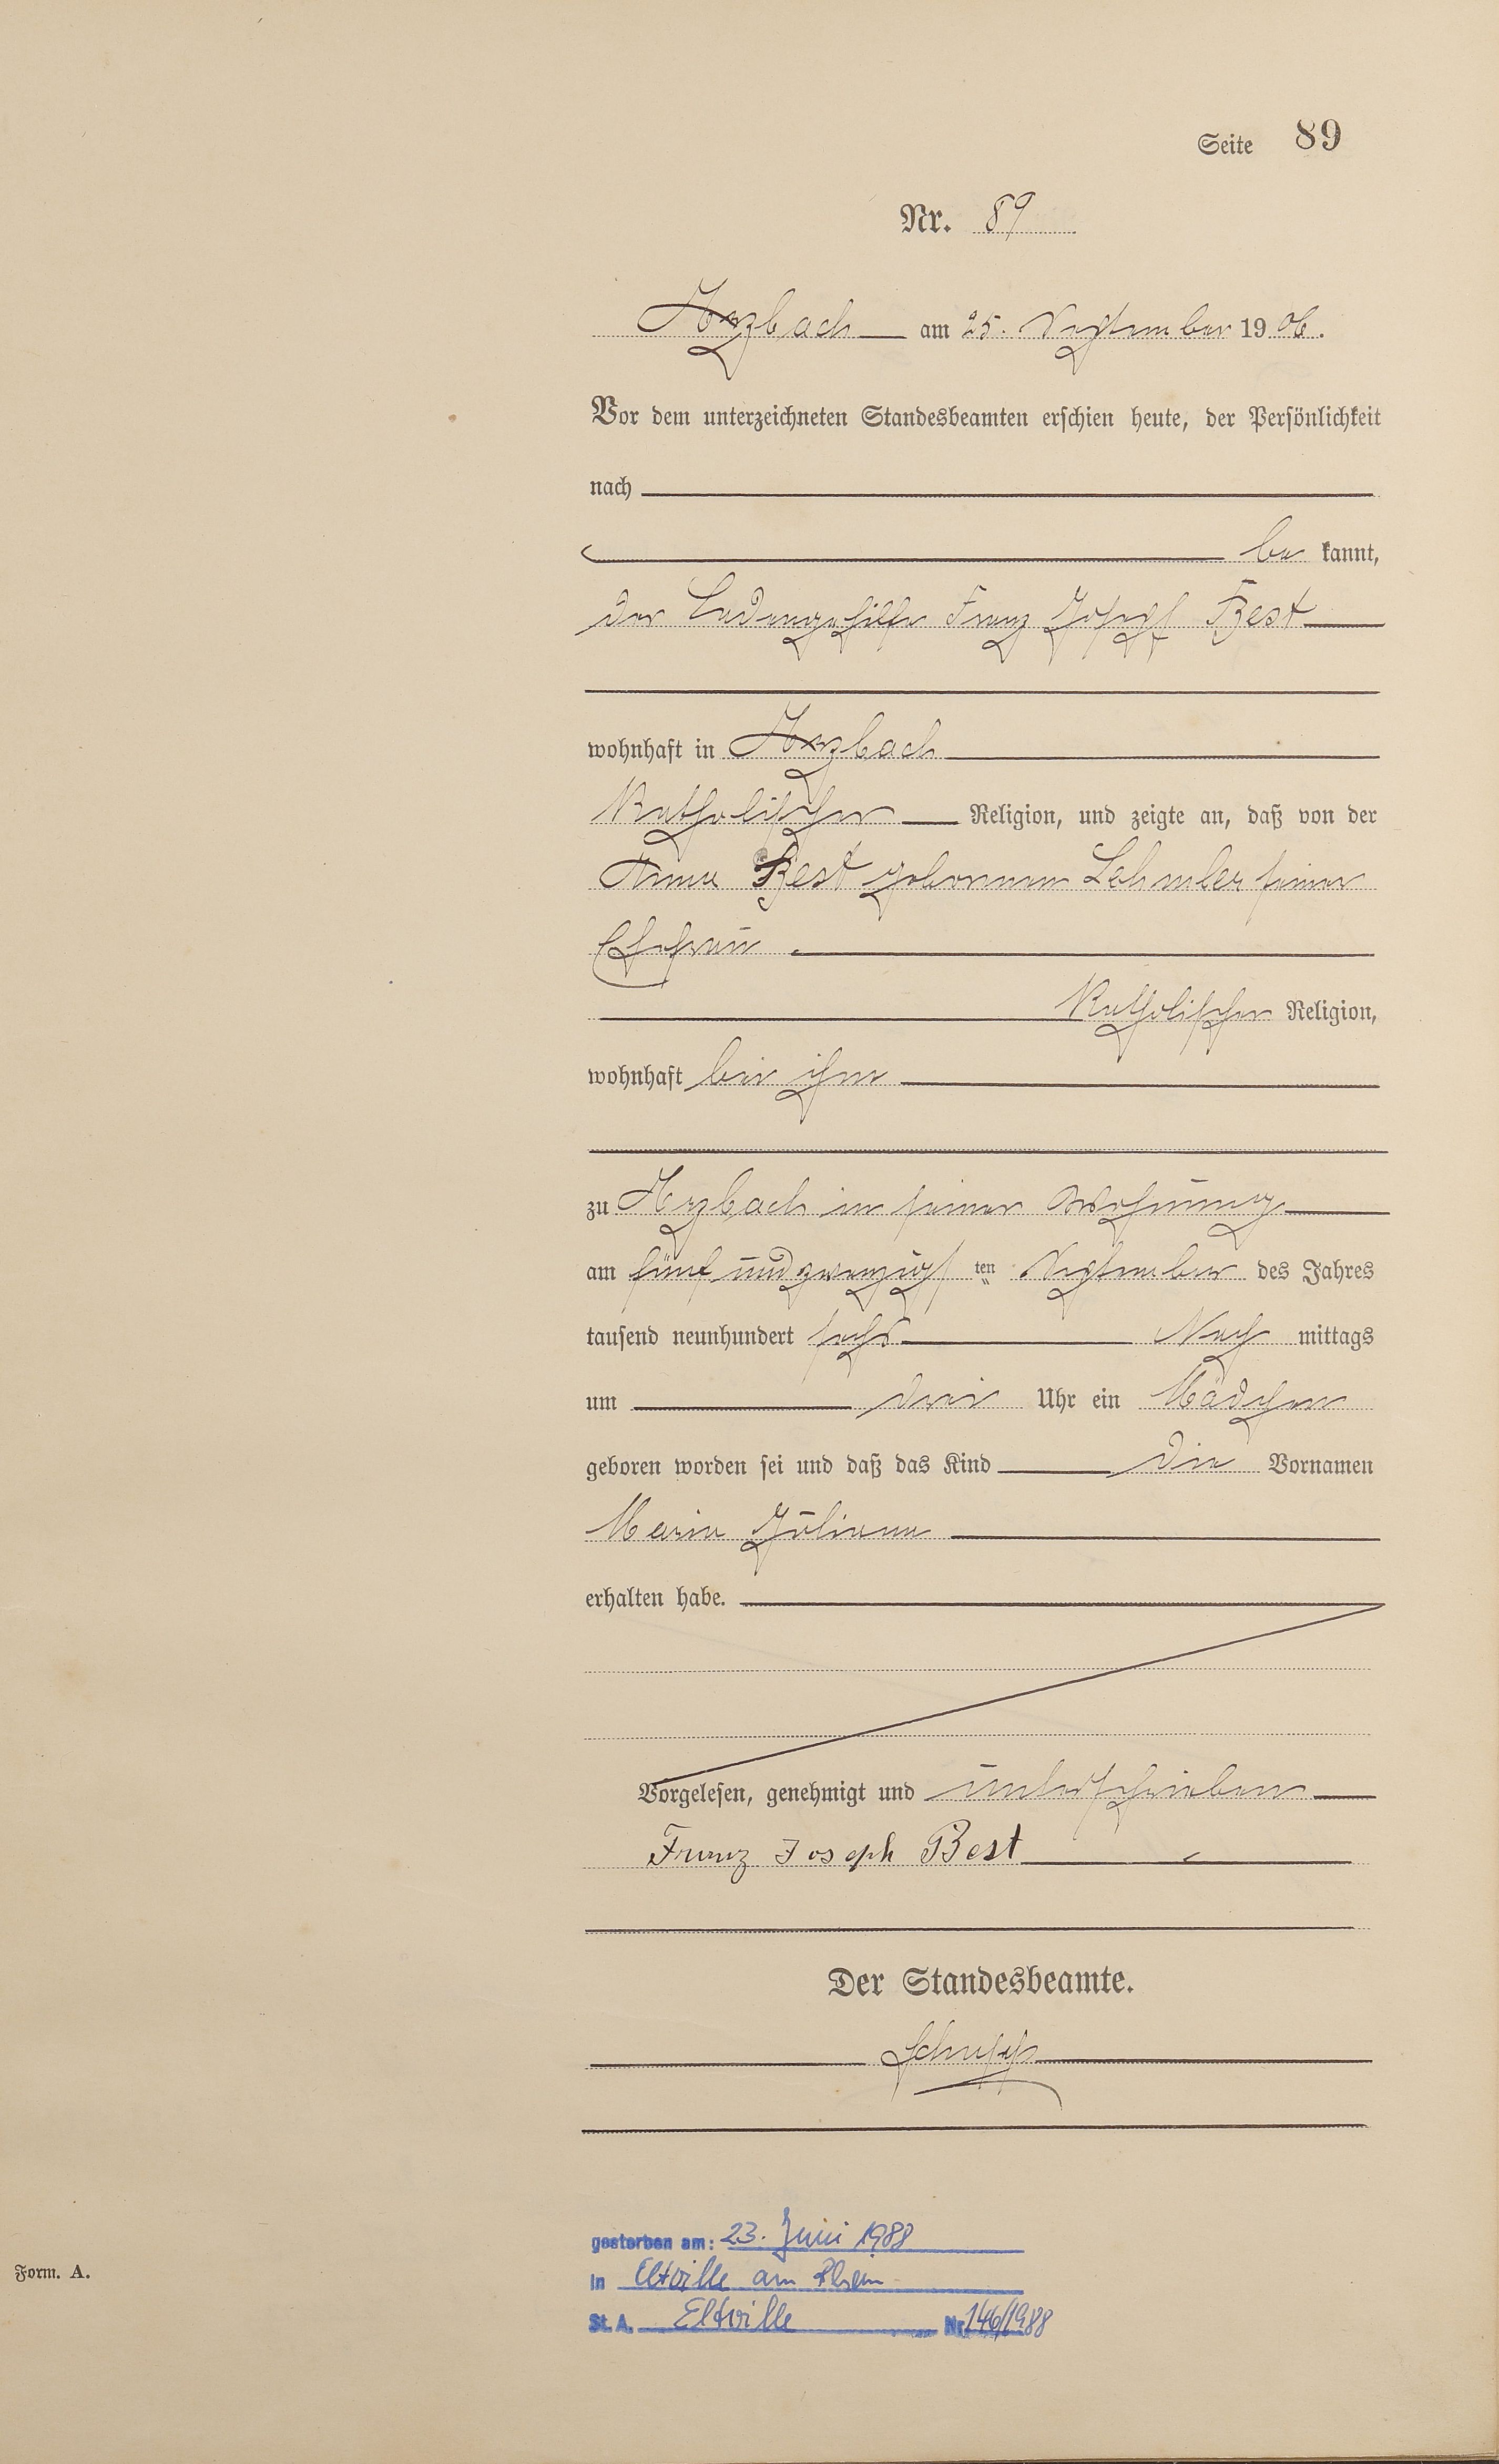 Seite 89
Nr. 89
Arzbach am 25. September 1906.
Vor dem unterzeichneten Standesbeamten erschien heute, der Persönlichkeit
nach
be kannt,
der Ladengehilfe Franz Joseph Best
wohnhaft in Arzbach
Katholischer Religion, und zeigte an, daß von der
Anna Best geborenen Lehmler seiner
Ehefrau
Katholischer Religion,
wohnhaft bei ihm
zu Arzbach in seiner Wohnung
am fünf und zwanzigsten September des Jahres
tausend neunhundert sechs Nach mittags
um drei Uhr ein Mädchen
geboren worden sei und daß das Kind die Vornamen
Maria Juliana
erhalten habe.
Vorgelesen, genehmigt und unterschrieben
Franz Joseph Best
Der Standesbeamte.
Schupp
gestorben am: 23. Juni 1988
in Eltville am Rhein
St. A. Eltville Nr. 146/1988
Form. A.